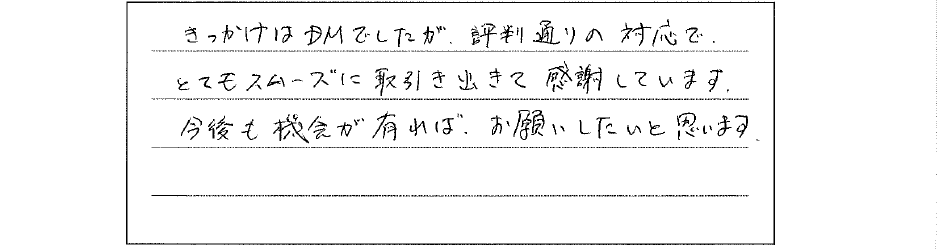 きっかけはDMでしたが、評判通りの対応で、
とてもスムーズに取引き出きて感謝しています。
今後も機会が有れば、お願いしたいと思います。